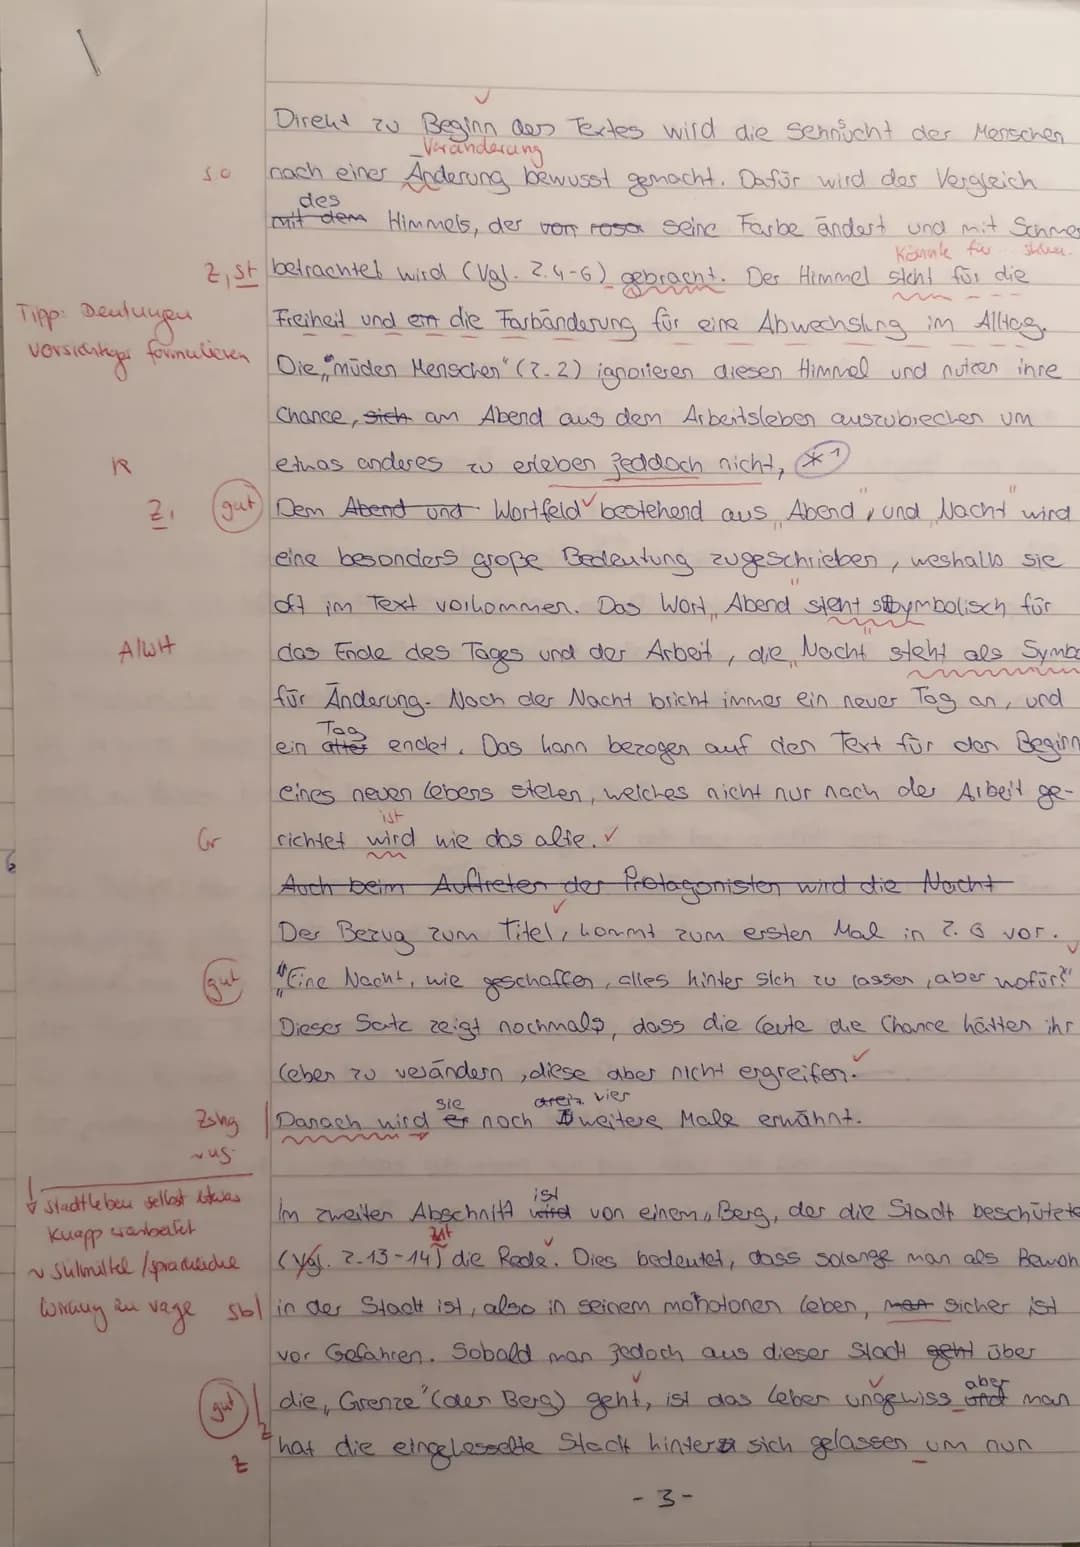 Direkt zu Beginn des Textes wird die Sehnsücht der Menschen
Veränderung
s.o
nach einer Änderung bewusst gemacht. Dafür wird der Vergleich
des
mit dem Himmels, der von rosa seine Farbe ändert und mit
Könnte für
Z, St betrachtet wird (Vgl. Z. 4-6) gebracht. Der Himmel steht für die
Tipp: Deutungen
Freiheit und ein die Farbänderung für eine Abwechslung im Alltag.
vorsichtiger formulieren
Die "müden Menschen" (Z. 2) ignorieren diesen Himmel und nutzen ihre
Chance, sich am Abend aus dem Arbeitsleben auszubrechen um
R
etwas anderes zu erleben jeddoch nicht, *1
Z, gut
Dem Abend und Wortfeld bestehend aus "Abend", und "Nacht" wird
eine besonders große Bedeutung zugeschrieben, weshalb sie
oft im Text vorkommen. Das Wort "Abend" steht symbolisch für
A/WH
das Ende des Tages und der Arbeit, die "Nacht" steht als
für Änderung. Nach der Nacht bricht immer ein neuer Tag an, und
Tag
ein alter endet. Das kann bezogen auf den Text für den Beginn
eines neuen Lebens stehen, welches nicht nur nach der Arbeit ge-
ist
Gr
richtet wird wie das alte.
Auch beim Auftreten der Protagonisten wird die Nacht
Der Bezug zum Titel, kommt zum ersten Mal in Z. 6 vor.
gut
"Eine Nacht, wie geschaffen, alles hinter sich zu lassen, aber wofür?"
Dieser Satz zeigt nochmals, dass die Leute die Chance hätten ihr
Leben zu verändern, diese aber nicht ergreifen.
sie
vier
Zshg
Danach wird er noch weitere Male erwähnt.
~us
Stadtleben selbst etwas
ist
Im zweiten Abschnitt wird von einem "Berg, der die Stadt
knapp
Zit
~ Stilmittel / sprachliche
(Vgl. Z. 13-14) die Rede. Dies bedeutet, dass solange man als
Wirkung zu vage
Sb
in der Stadt ist, also in seinem monotonen Leben, man sicher ist
vor Gefahren. Sobald man jedoch aus dieser Stadt geht über
aber
gut
die "Grenze" (den Berg) geht, ist das Leben ungewiss und man
Z
Z
hat die eingekesselte Stadt hinter sich gelassen um nun
- 3 -